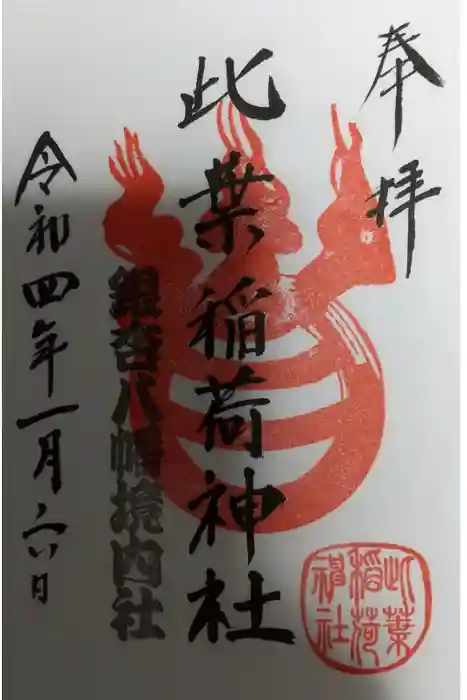 奉拝
此葉稲荷神社
銀杏八幡境内社
令和四年一月六日
此葉
稲荷
神社